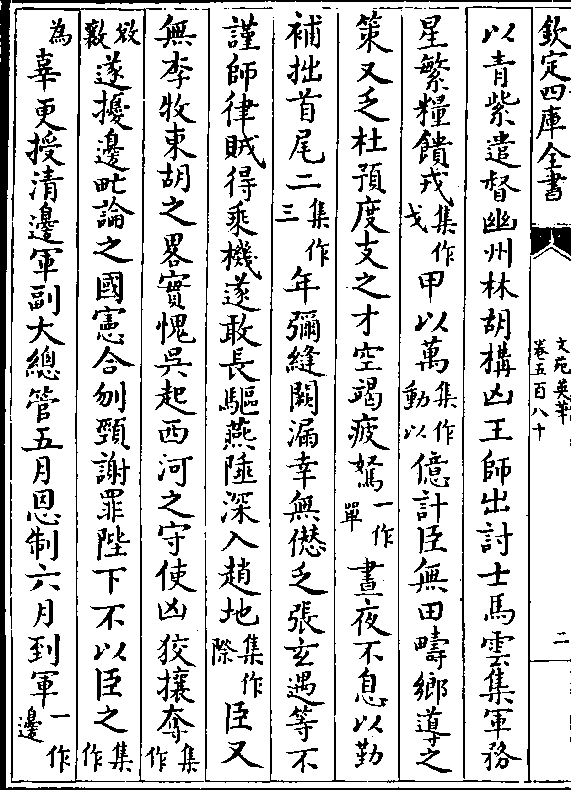 欽定四庫全書
文苑英華
卷五百八十
二
以青紫遣督幽州林胡構凶王師出討士馬雲集軍務
星繁糧饋戎集作戈甲以萬集作動以億計臣無田疇鄉導之
策又乏杜預度支之才空竭疲駑一作單晝夜不息以勤
補拙首尾二集作三年彌縫闕漏幸無僽乏張玄遇等不
謹師律賊得乘機遂敢長驅燕陲深入趙地集作際臣又
無李牧東胡之畧實愧吳起西河之守使凶狡攘奪集作
敓敚遂擾邊甿論之國憲合刎頸謝罪陛下不以臣之集作
為辜更授清邊軍副大總管五月恩制六月到軍一作邊